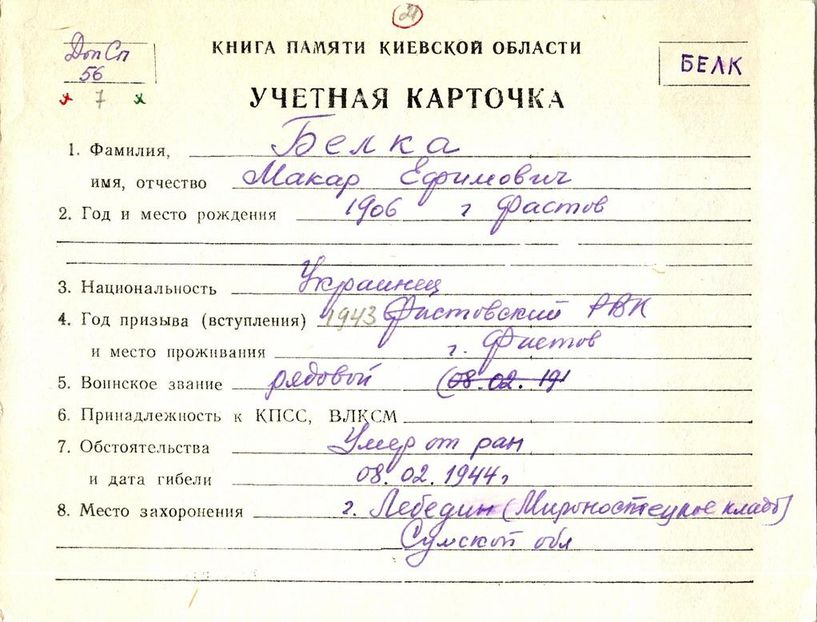 21
Доп Сп
56
7
КНИГА ПАМЯТИ КИЕВСКОЙ ОБЛАСТИ
БЕЛК
УЧЕТНАЯ КАРТОЧКА
1. Фамилия, Белка
имя, отчество Макар Ефимович
2. Год и место рождения 1906 г Фастов
3. Национальность Украинец
4. Год призыва (вступления) 1943 Фастовский РВК
и место проживания г. Фастов
5. Воинское звание рядовой (08.02.191
6. Принадлежность к КПСС, ВЛКСМ
7. Обстоятельства Умер от ран
и дата гибели 08.02.1944г
8. Место захоронения г. Лебедин (Мироностецкое кладб)
Сумской обл